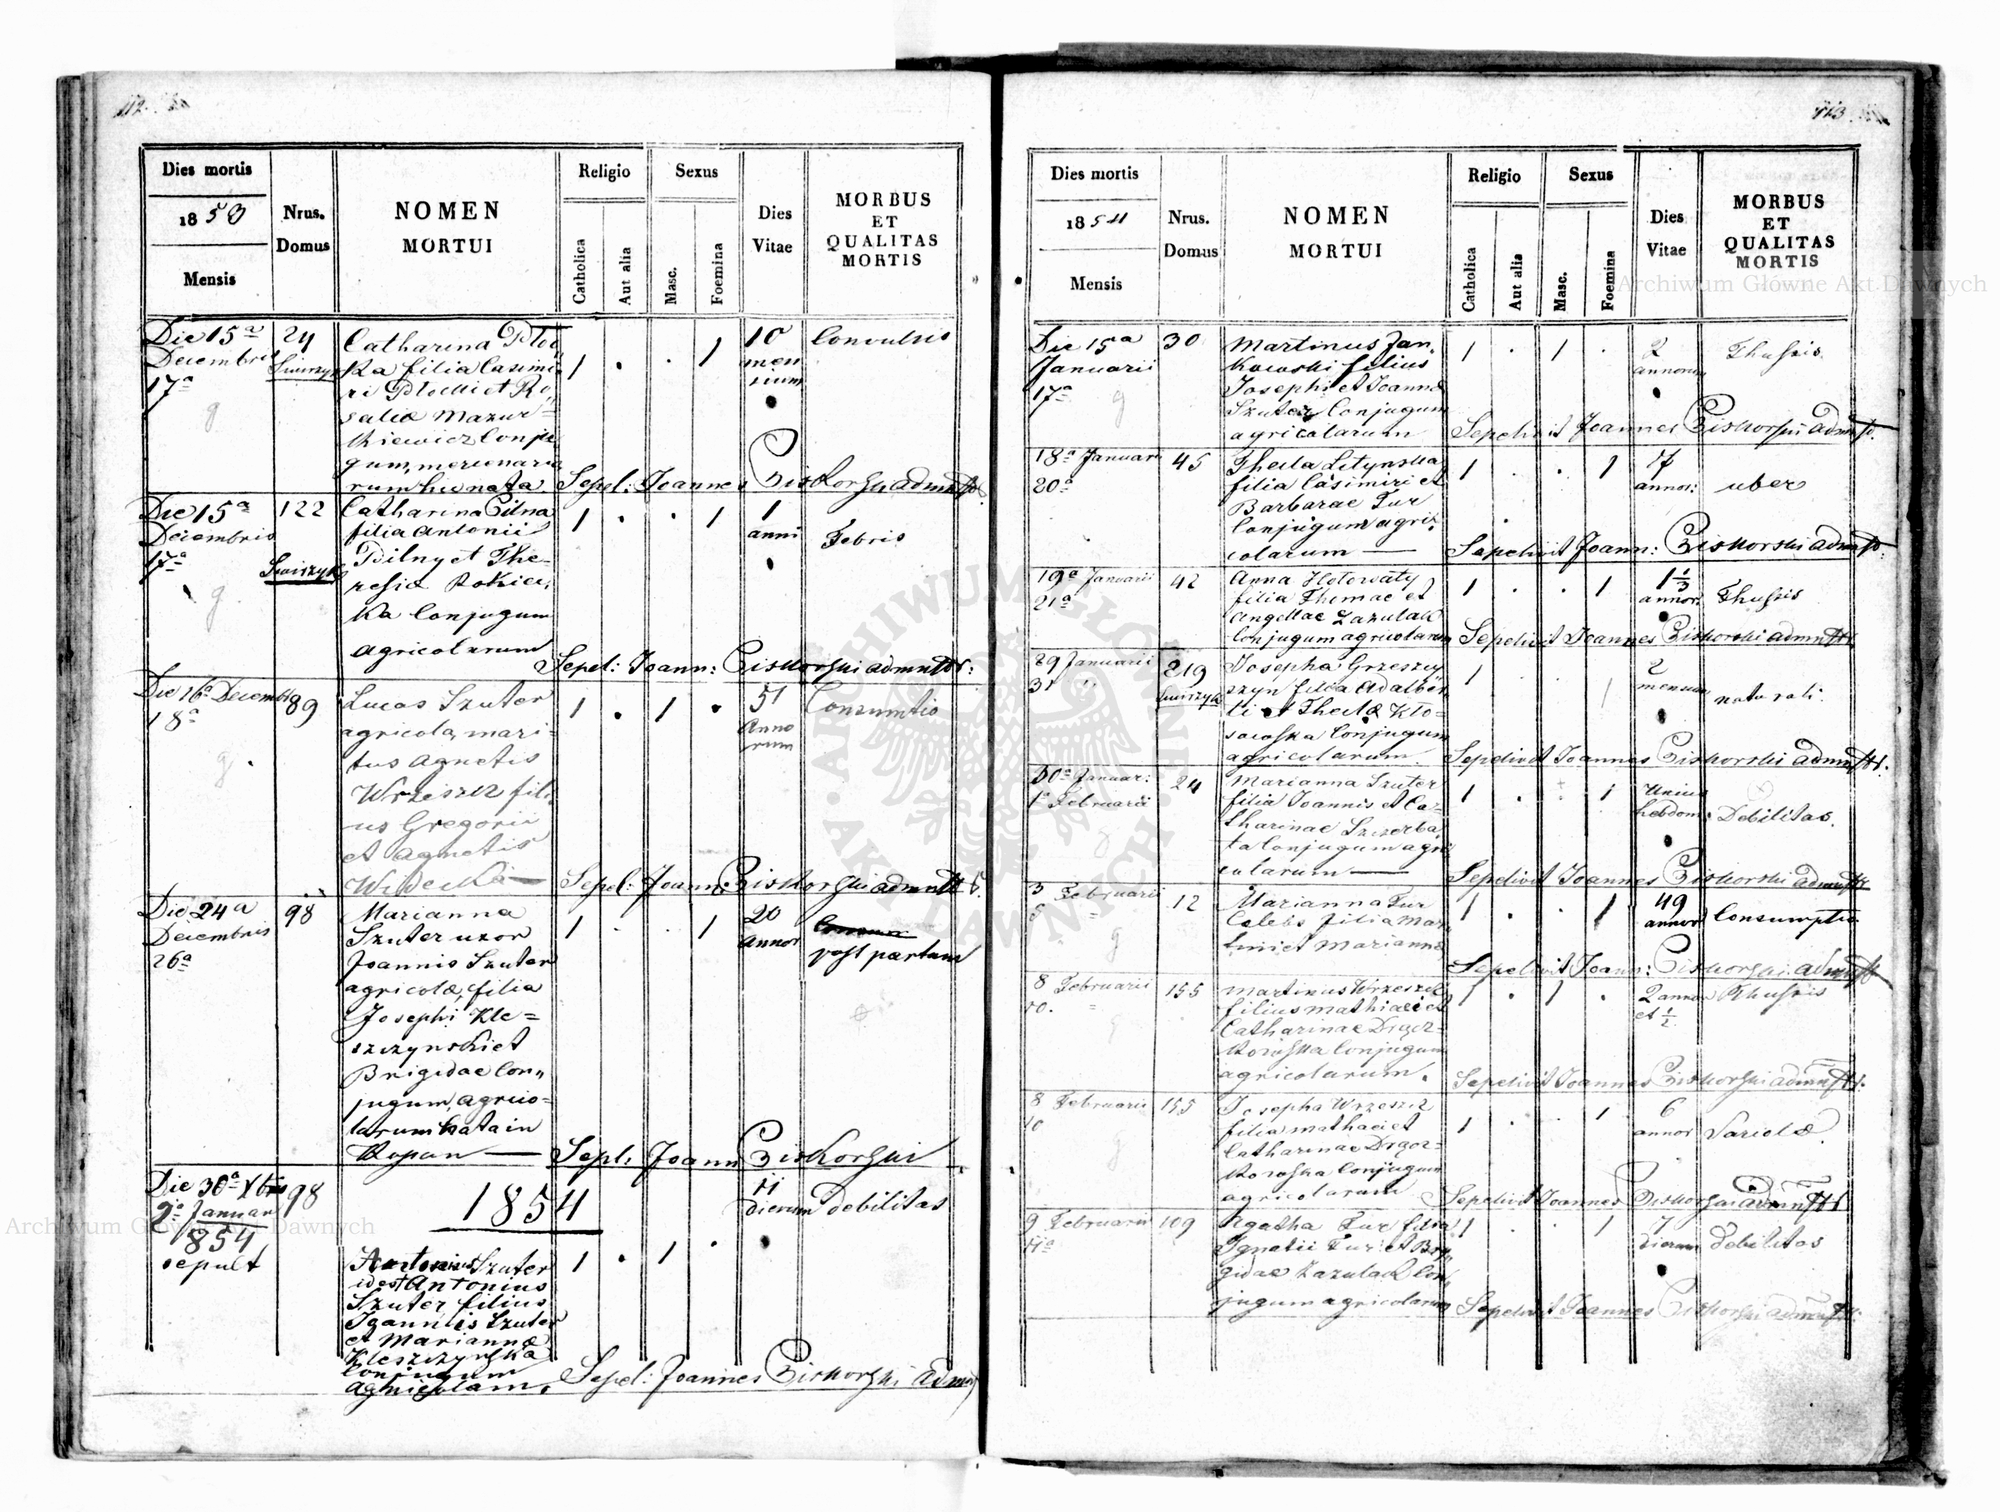 112.
Dies mortis
1853
Mensis
Nrus.
Domus
NOMEN
MORTUI
Religio
Catholica
Aut alia
Sexus
Masc.
Foemina
Dies
Vitae
MORBUS
ET
QUALITAS
MORTIS
Die 15a
Decembris
17a
24
Swirzyk
Catharina
ka filia Casimi
ri
salia Mazur=
kiewicz Conju
gum, mercenaria
rum
1 . . 1
10
men
sium
Convulsis
Sepel: Joannes Ziskorski admnstr
Die 15a
Decembris
17a
122
Swirzyk
Catharina Pilna
filia Antonii
Pilny et The-
resia
ka Conjugum
agricolarum
1 . . 1
1
anni
Febris
Sepel: Joann: Ziskorski admnstr:
Die 16a Decemb
18a
89
Lucas Szuter
agricola, mari-
tus Agnetis
Wrzeszcz fili
us Gregorii
et Agnetis
1 . 1 .
51
Anno
rum
Consumtio
Sepel: Joann: Ziskorski admnstr
Die 24a
Decembris
26a
98
Marianna
Szuter uxor
Joannis Szuter
agricolæ, filia
Josephi Kle=
szczynski et
Brigidae Con„
jugum agrico-
larum nata in
Kupan —
1 . . 1
20
Annor
post partum
Sepl: Joann Ziskorski
Die 30a Xbris
2a Januar
854
sepult
98
1854
Szuter
idest Antonius
Szuter filius
Joannis Szuter
et Mariannæ
Kleszczyńska
Conjugum
agricolarum.
1 . 1 .
dierum
debilitas
Sepel: Joannes Ziskorski admn
113.
Dies mortis
1854
Mensis
Nrus.
Domus
NOMEN
MORTUI
Religio
Catholica
Aut alia
Sexus
Masc.
Foemina
Dies
Vitae
MORBUS
ET
QUALITAS
MORTIS
Die 15a
Januarii
17a
30
Martinus Jan„
kowski filius
Josephi et Joannæ
Szuter Conjugum
agricolarum
1 . 1 .
2
annorum
Thussis
Sepelivit Joannes Ziskorski admnst.
18a Januar
20a
45
Thecla Litynska
filia Casimiri et
Barbarae Fur
Conjugum agri„
colarum —
1 . . 1
7
annor:
uber
Sepelivit Joann: Ziskorski admnst.
19a Januarii
21a
42
Anna Hotowaty
filia Thomae et
Angellae Zazulak
Conjugum agricolarum
1 . . 1
1 1/3
annor:
Thussis
Sepelivit Joannes Ziskorski admnstr.
29 Januarii
31 "
219
Swirzyk
Josepha Grzeszczy
szyn filia Adalber
ti et Theclæ Kło-
sowska Conjugum
agricolarum.
1 . . 1
2
mensium
naturali.
Sepelivit Joannes Ziskorski admnstr.
30a Januar:
1a Februarii
24
Marianna Szuter
filia Joannis et Ca-
tharinae Szczerba,
ta Conjugum agri
colarum —
1 . . 1
unius
hebdom:
Debilitas.
Sepelivit Joannes Ziskorski admnstr
3 Februarii
5 "
12
Marianna Fur
Celebs filia Mar
tini et Mariannæ
1 . . 1
49
annor
Consumptio
Sepelivit Joann: Ziskorski admnstr
8 Februarii
10. "
155
Martinus Wrzeszcz
filius Mathiaei et
Catharinae
Conjugum
agricolarum.
1 . 1 .
2 annor
et 1/2
Thussis
Sepelivit Joannes Ziskorski admnstr.
8 Februarii
10
155
Josepha Wrzeszcz
filia Mathaei et
Catharinae
Conjugum
agricolarum
1 . . 1
6
annor
Variolæ
Sepelivit Joannes Ziskorski admnstr
9 Februarii
11a
109
Agatha Fur filia
Ignatii Fur et Bry„
gidae Zazulak Con„
jugum agricolarum
1 . . 1
7
dierum
debilitas
Sepelivit Joannes Ziskorski admnstr.
Archiwum Główne Akt Dawnych
Archiwum Główne Akt Dawnych
ARCHIWUM GŁÓWNE AKT DAWNYCH